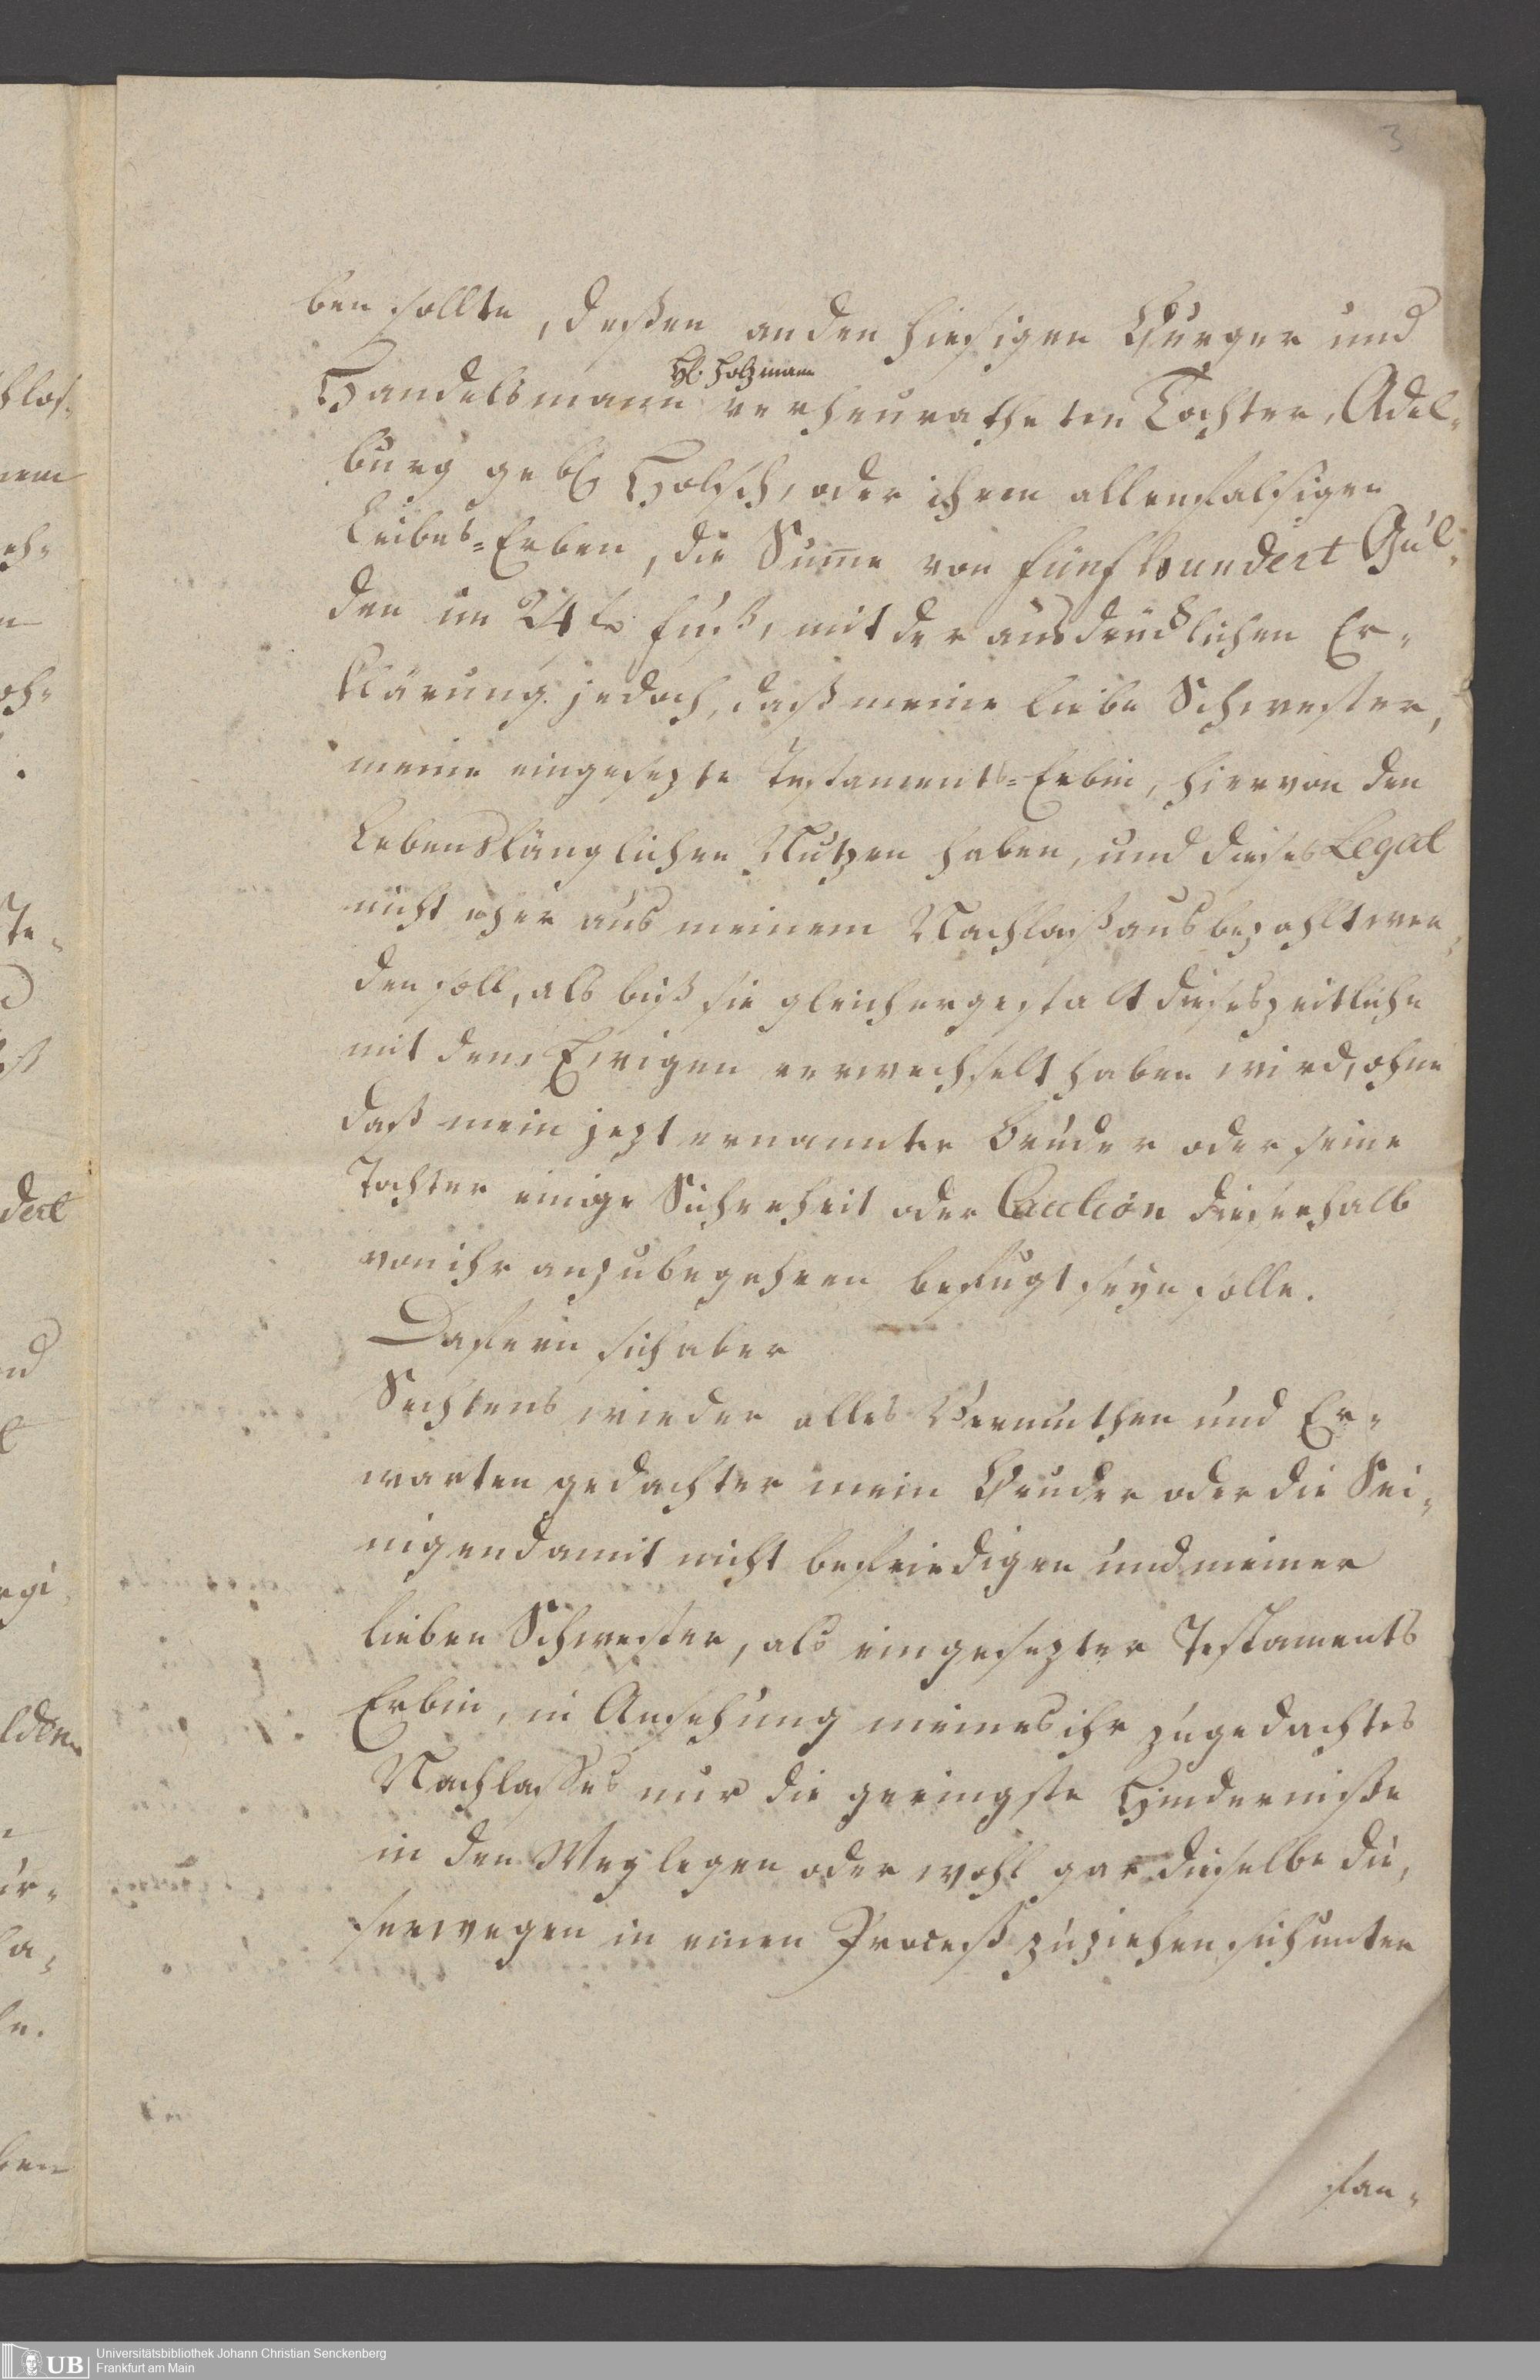 3
ben sollte, deßen an den hiesigen Burger und
H. Holzmann
Handelsmann verheuratheten Tochter, Adel-
burg geb. Holsch, oder ihren allenfalsigen
Leibes-Erben, die Sume von fünf hundert Gul-
den im 24 f. Fuß, mit der ausdrücklichen Er-
klärung jedoch, daß meine liebe Schwester,
meine eingesezte Testaments-Erbin, hiervon den
Lebenslänglichen Nutzen haben, und dieses Legat
nicht eher aus meinem Nachlaß ausbezahlt wer-
den soll, als biß sie gleichergestalt dieses zeitliche
mit dem Ewigen verwechselt haben wird, ohne
daß mein jezt ernannter Bruder oder seine
Tochter einige Sicherheit oder Caution dieserhalb
von ihr anzubegehren befugt seyn solle.
Dafern sich aber
Sechtens wieder alles Vermuthen und Er-
warten gedachter mein Bruder oder die Sei-
nigen damit nicht befriedigen und meiner
lieben Schwester, als eingesezter Testaments
Erbin, in Ansehung meines ihr zugedachtes
Nachlasses nur die geringste Hinderniße
in den Weg legen oder wohl gar dieselbe die-
serwegen in einen Proceß zuziehen sich unter
stan-
UB
Universitätsbibliothek Johann Christian Senckenberg
Frankfurt am Main